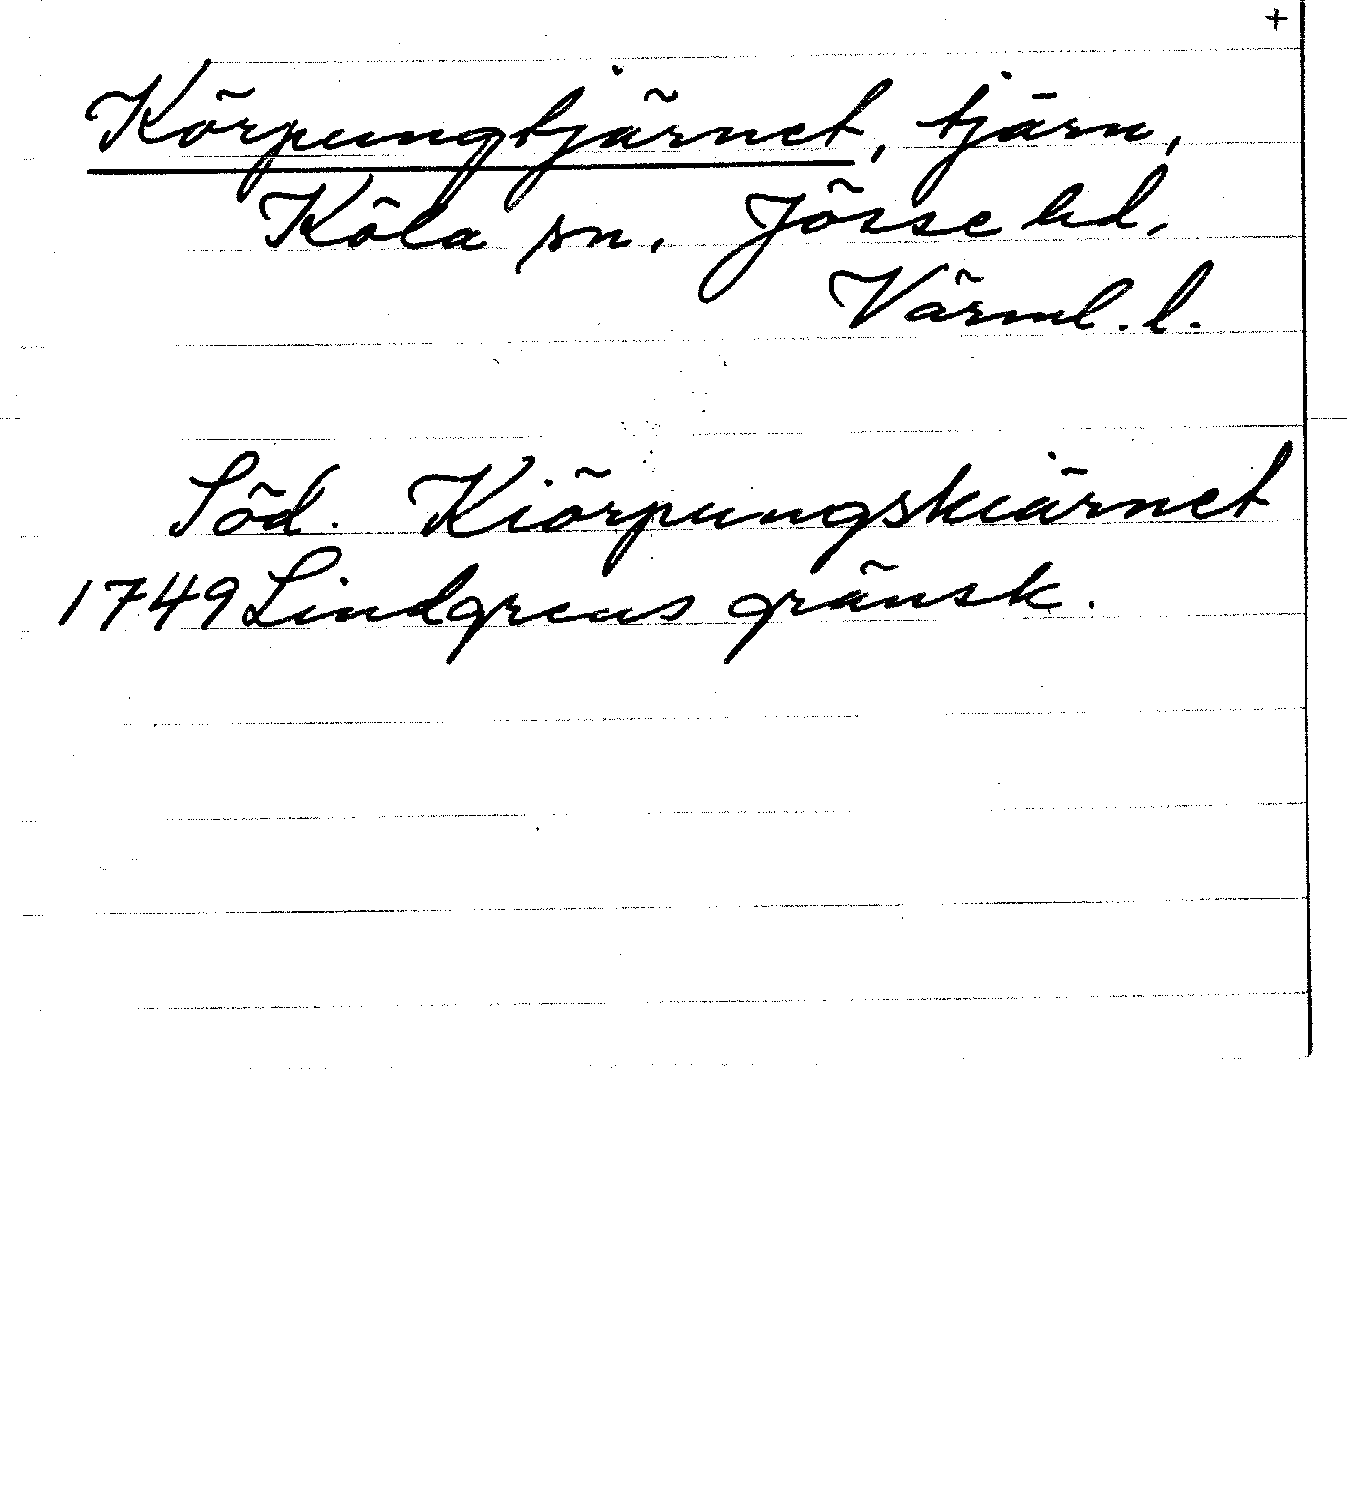 +
Körpungtjärnet, tjärn,
Köla sn. Jösse hd,
Värml. l.
Söd. Kiörpungskiärnet
1749 Lindgrens gränsk.